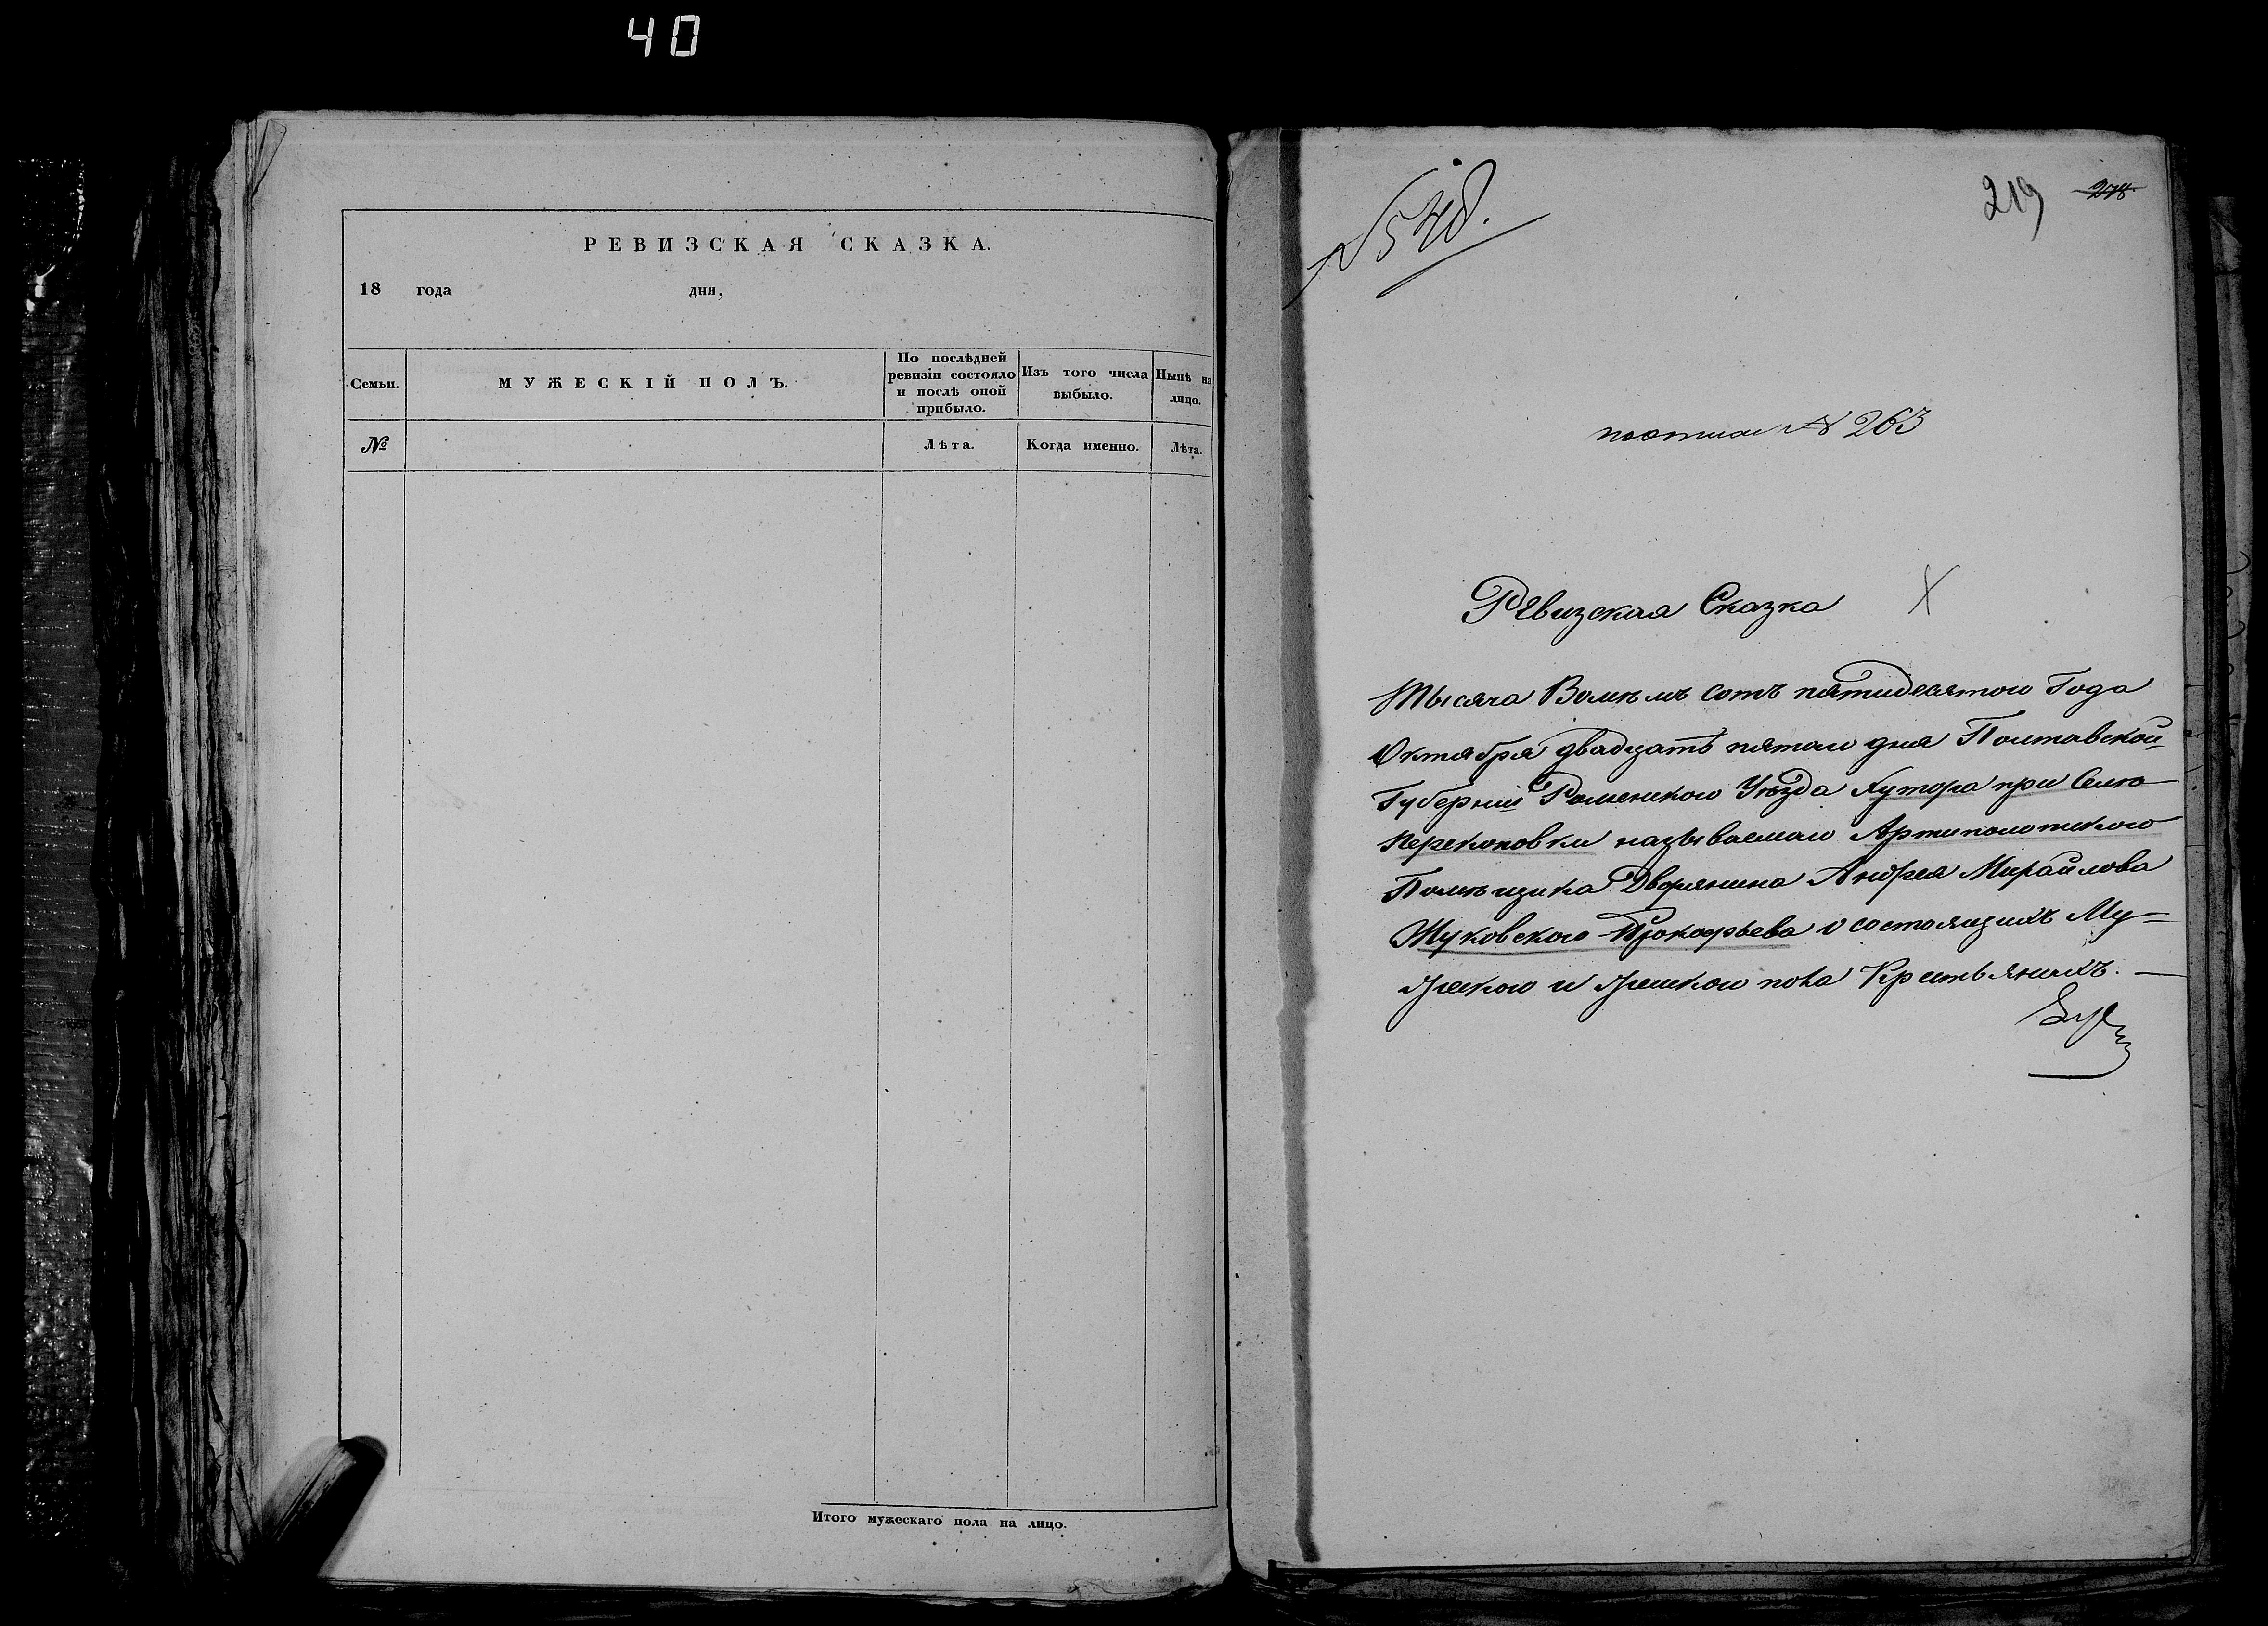 40
РЕВИЗСКАЯ СКАЗКА.
18 года дня,
Семьи.
МУЖЕСКІЙ ПОЛЪ.
По послѣдней ревизіи состояло и послѣ оной прибыло.
Изъ того числа выбыло.
Нынѣ на лицо.
№
Лѣта.
Когда именно.
Лѣта.
Итого мужескаго пола на лицо.
№ 548.
219
278
№ 263
Ревизская Сказка
Тысяча Восѣмъ сотъ пятидесятого Года
Октября двадцать пятаго дня Полтавской
Губерніи Роменского Уѣзда Хутора при Селѣ
Перекоповки называемаго Артополотского
Помѣщика Дворянина Андрея Михайлова
Жуковского Прокофьева о состоящихъ Му-
жеского и Женского пола Крестьянахъ.